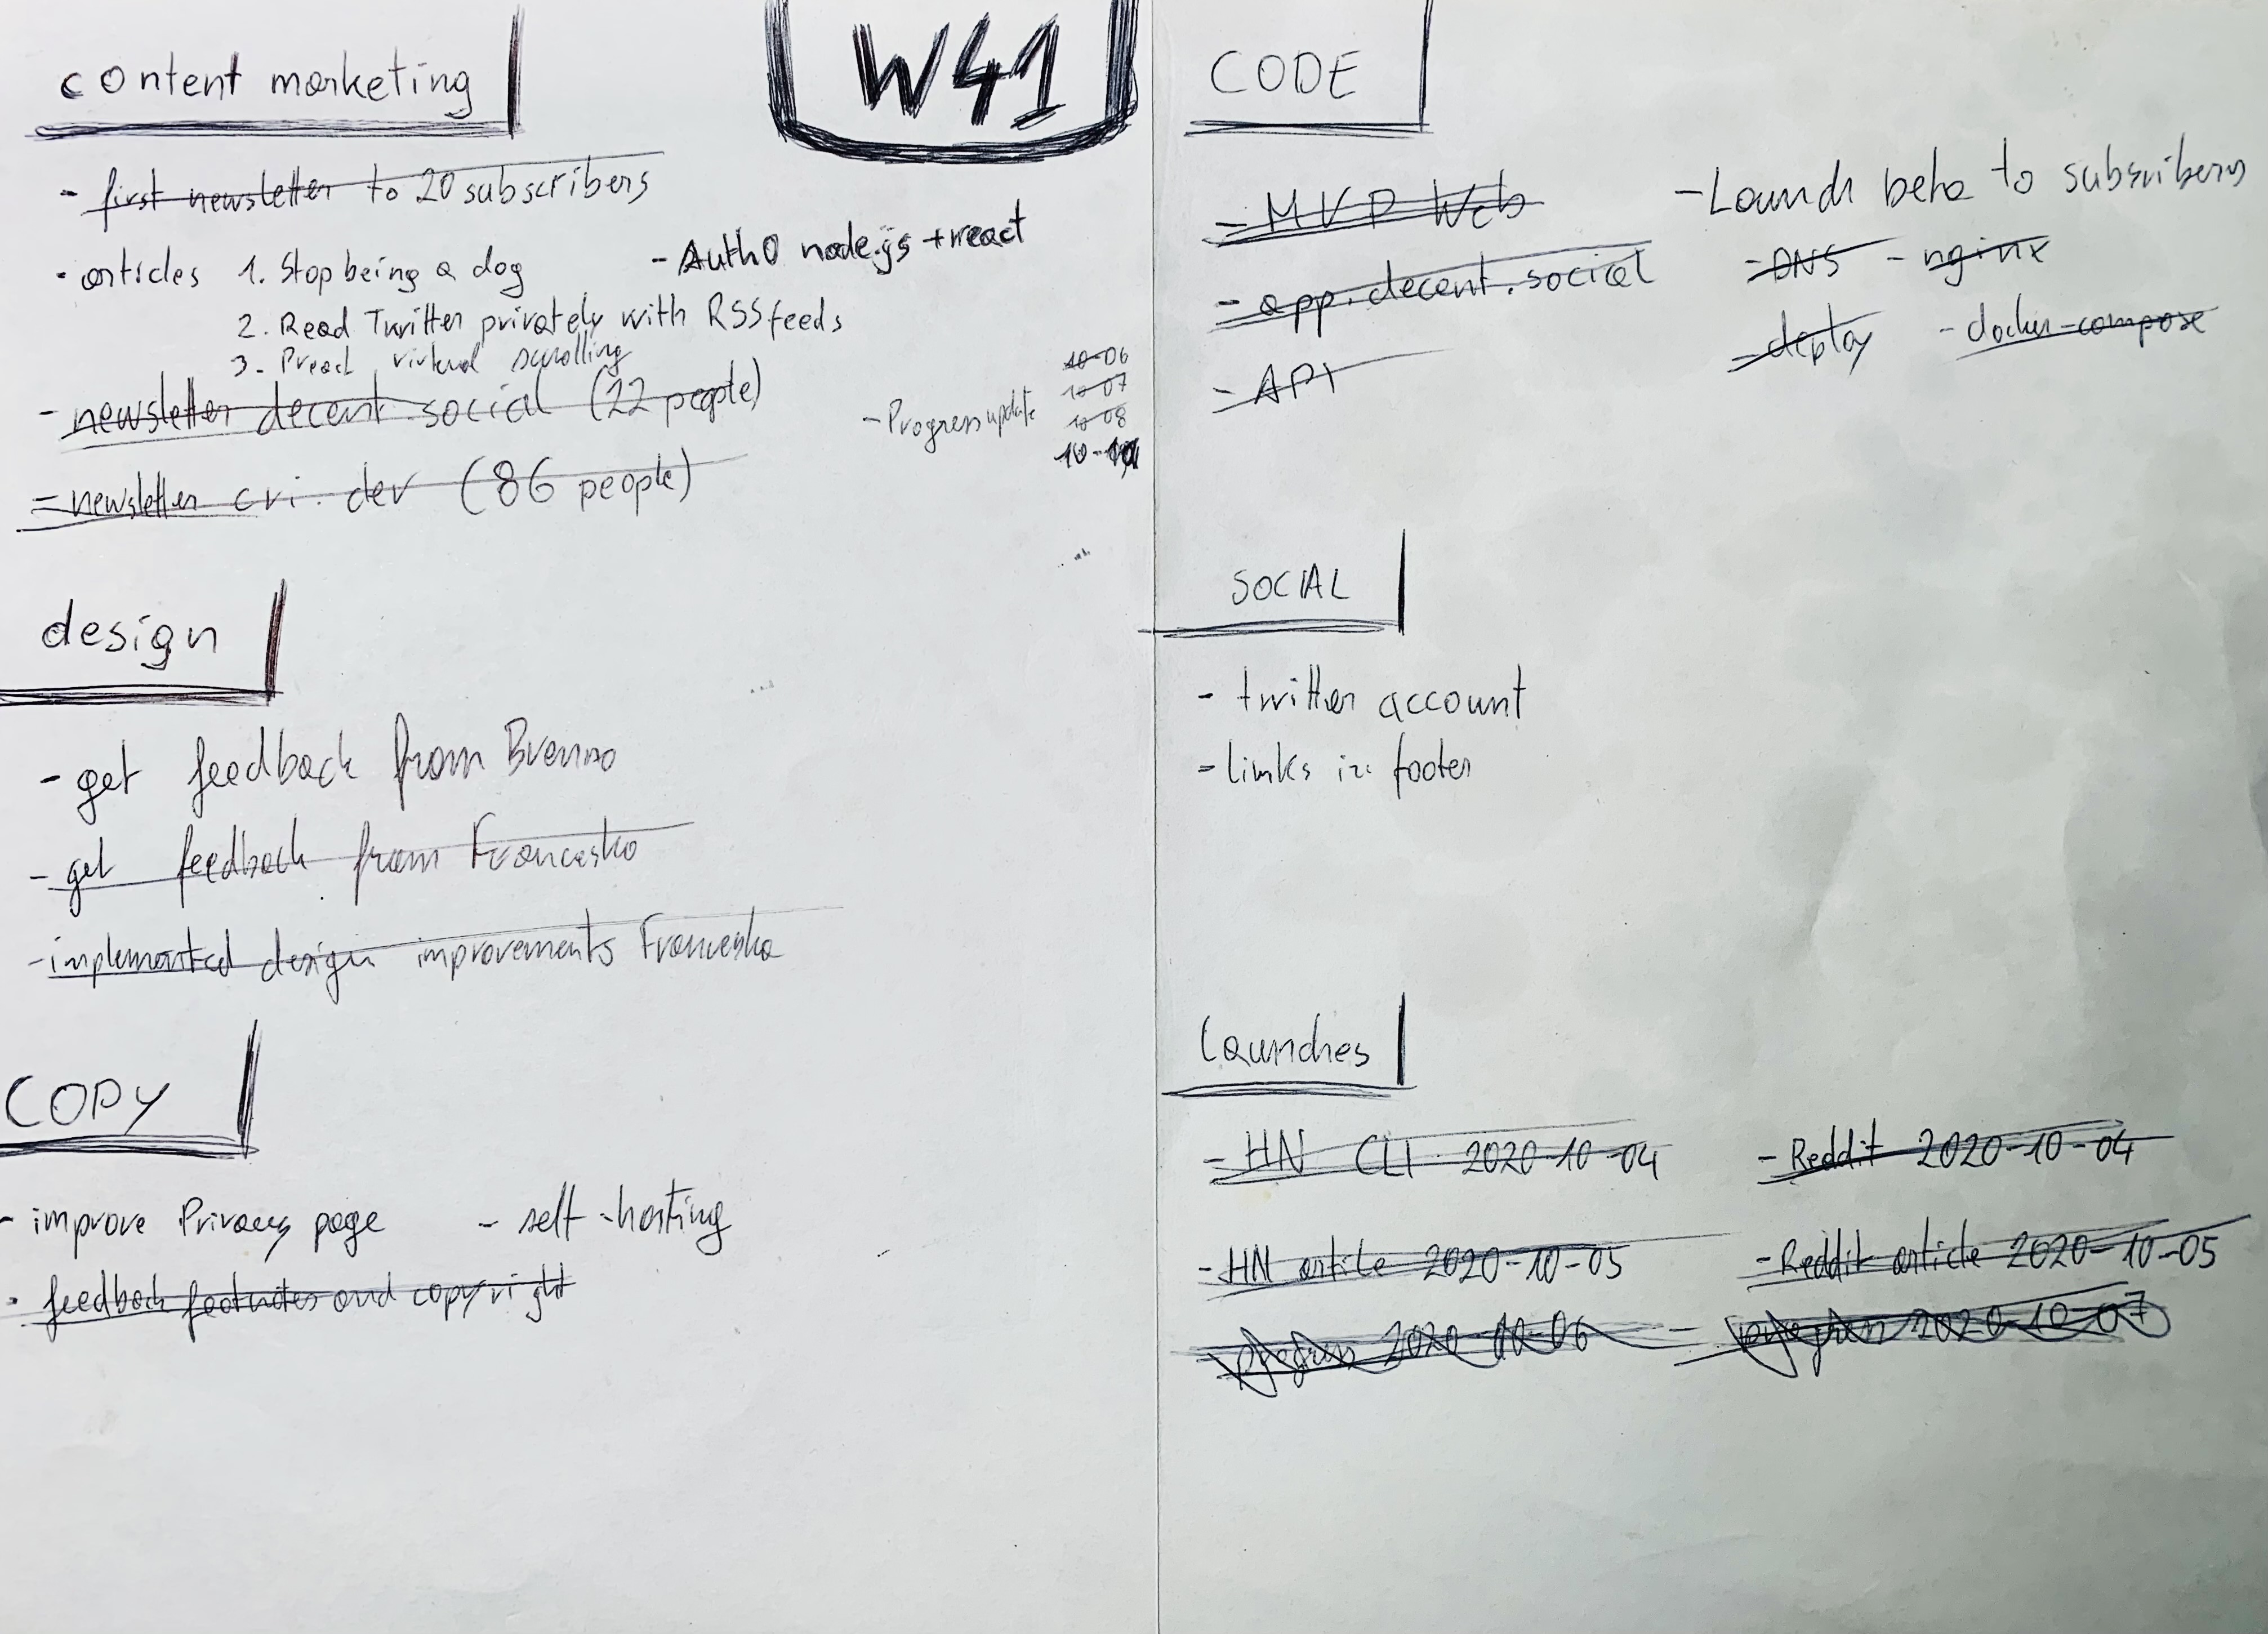 W41
content marketing
- first newsletter to 20 subscribers
- articles 1. Stop being a dog
- Auth0 node.js + react
2. Read Twitter privately with RSS feeds
3. Preact virtual scrolling
- newsletter decent.social (22 people)
- Progress update
10-06
10-07
10-08
- newsletter cri.dev (86 people)
design
- get feedback from Brenno
- get feedback from Francesko
- implemented design improvements Francesko
COPY
- improve Privacy page - self-hosting
- feedback footnotes and copyright
CODE
- MVP Web
- Launch beta to subscribers
- app.decent.social
- DNS - nginx
- API
- deploy - docker-compose
SOCIAL
- twitter account
- links in footer
Launches
- HN CLI 2020-10-04 - Reddit 2020-10-04
- HN article 2020-10-05 - Reddit article 2020-10-05
progress 2020-10-06 - progress 2020-10-07